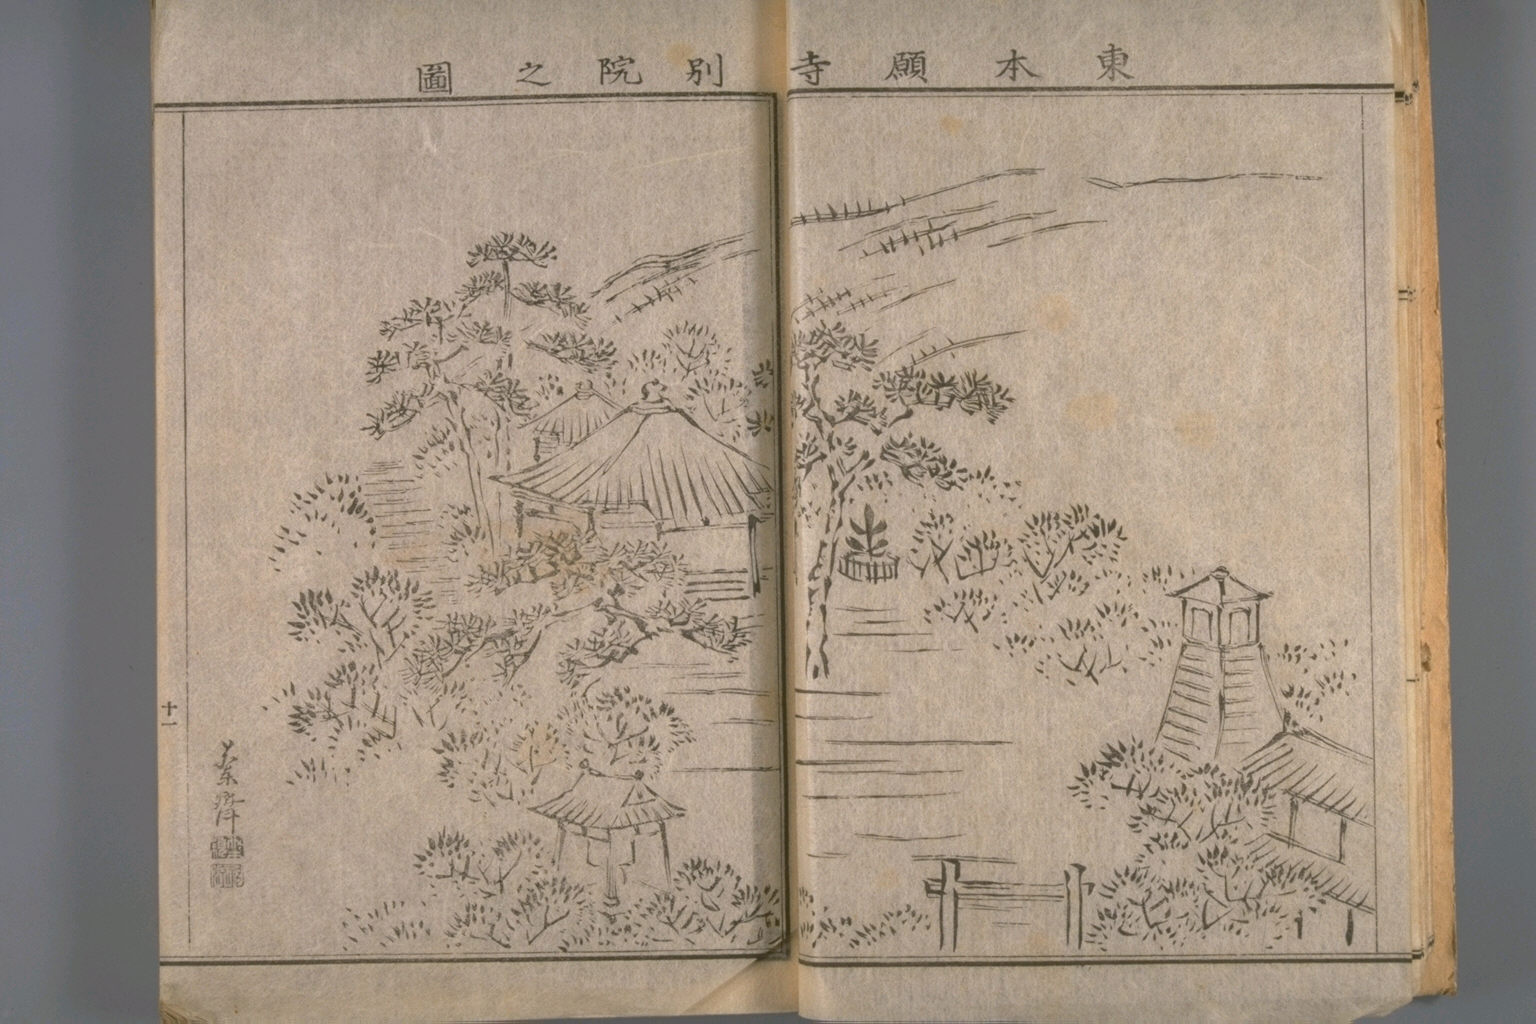 東本願寺別院之圖
十一